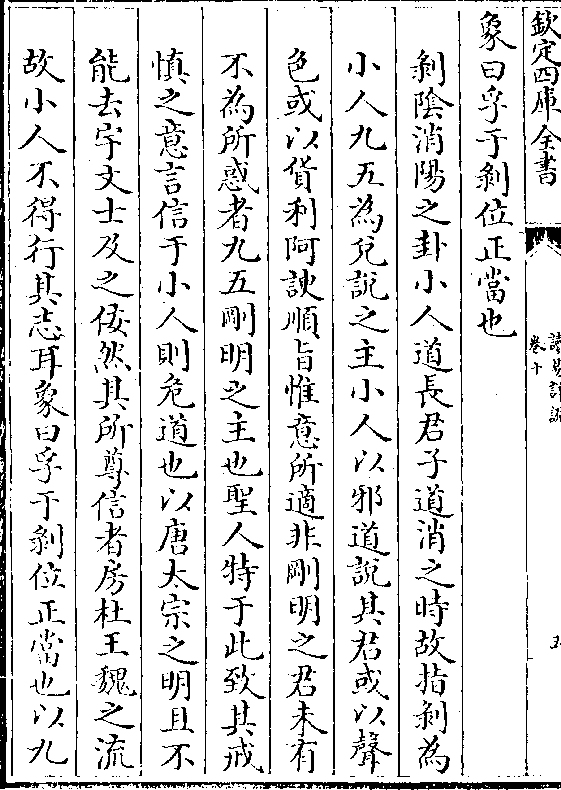 欽定四庫全書
讀易詳說
卷十
象曰孚于剥位正當也
剥陰消陽之卦小人道長君子道消之時故指剥為
小人九五為兌說之主小人以邪道說其君或以聲
色或以貨利阿諛順旨惟意所適非剛明之君未有
不為所惑者九五剛明之主也聖人特于此致其戒
慎之意言信于小人則危道也以唐太宗之明且不
能去宇文士及之佞然其所尊信者房杜王魏之流
故小人不得行其志耳象曰孚于剥位正當也以九